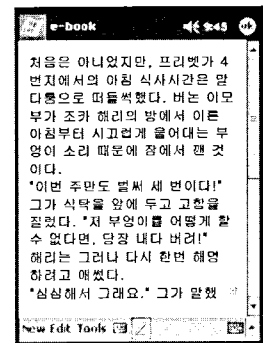 e-book 9:45 ok
처음은 아니었지만, 프리벳가 4
번지에서의 아침 식사시간은 말
다툼으로 떠들썩했다. 버논 이모
부가 조카 해리의 방에서 이른
아침부터 시끄럽게 울어대는 부
엉이 소리 때문에 잠에서 깬 것
이다.
"이번 주만도 벌써 세 번이다!"
그가 식탁을 앞에 두고 고함을
질렀다. "저 부엉이를 어떻게 할
수 없다면, 당장 내다 버려!"
해리는 그러나 다시 한번 해명
하려고 애썼다.
"심심해서 그래요." 그가 말했
New Edit Tools